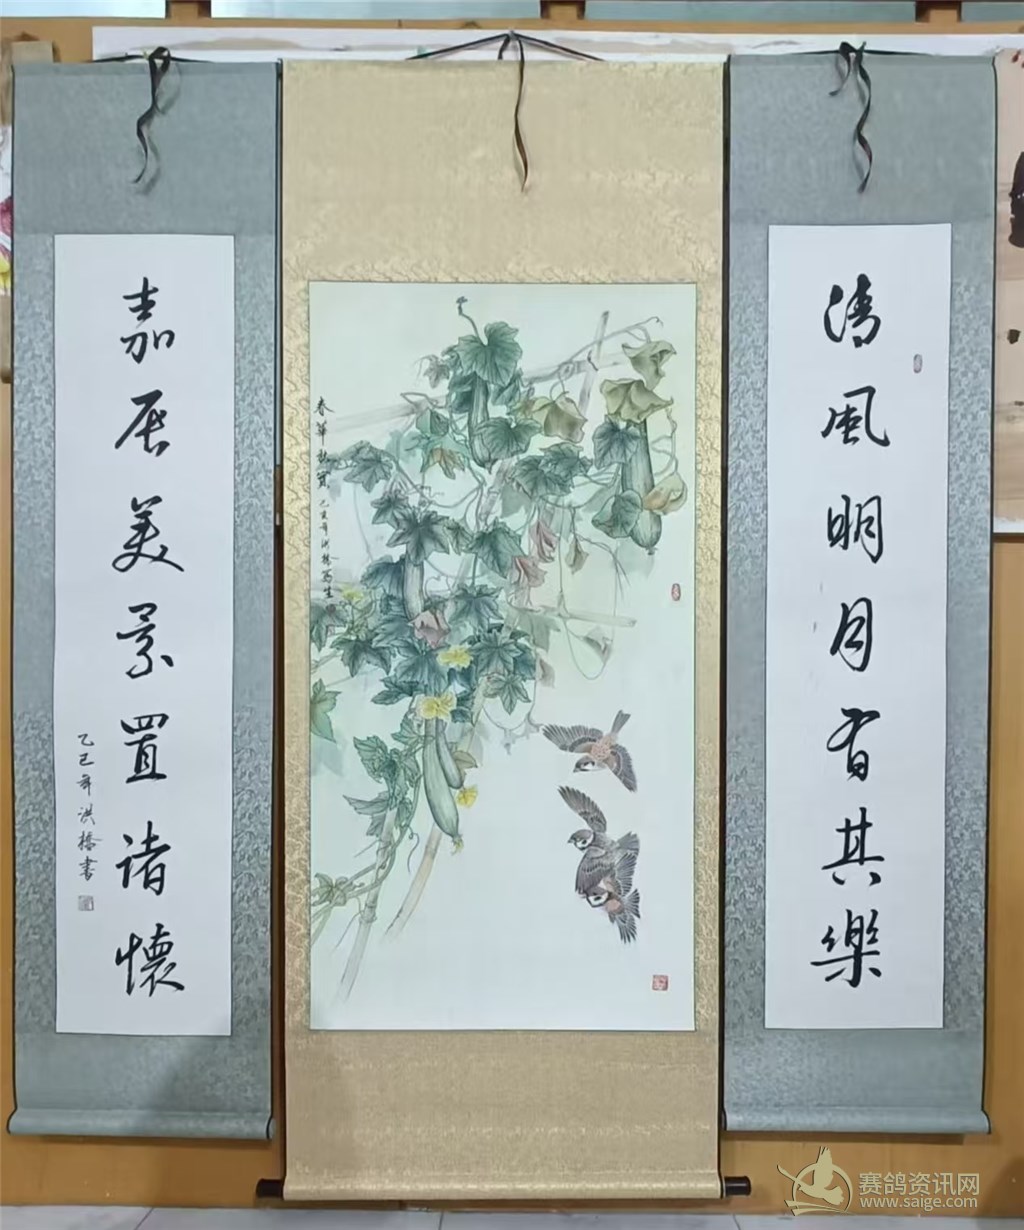 清風明月百其樂
春華秋實
己亥年洪橋寫生
嘉辰美景置諸懷
乙巳年洪橋書
赛鸽资讯网
www.saige.com